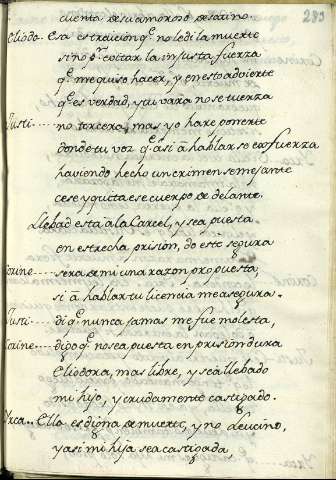 283
cuenta de su amoroso desatino
Eliodo. Esa es traicion q̃. no le di la muerte
sino p.r cottar la injusta fuerza
q̃. me quiso hacer, y en esto advierte
q̃. es verdad, y tu vara no se tuerza
Justi..... no torcera, mas yo hare ponerte
donde tu voz q̃. asi à hablar se esfuerza
haviendo hecho un crimen semejante
cese y quita ese cuerpo de delante.
Llebad esta à la Carcel, y sea puesta
en estrecha prision, do este segura
Corino..... sera de mi una razon propuesta,
si à hablar tu licencia me asegura.
Justi..... di q̃. nunca jamas me fue molesta,
Corine.... digo q̃. no sea puesta en prision dura
Eliodora, mas libre, y sea llebado
mi hijo, y crudamente castigado.
Yrca... Ella es digna de muerte, y no Leucino,
y asi mi hija sea castigada